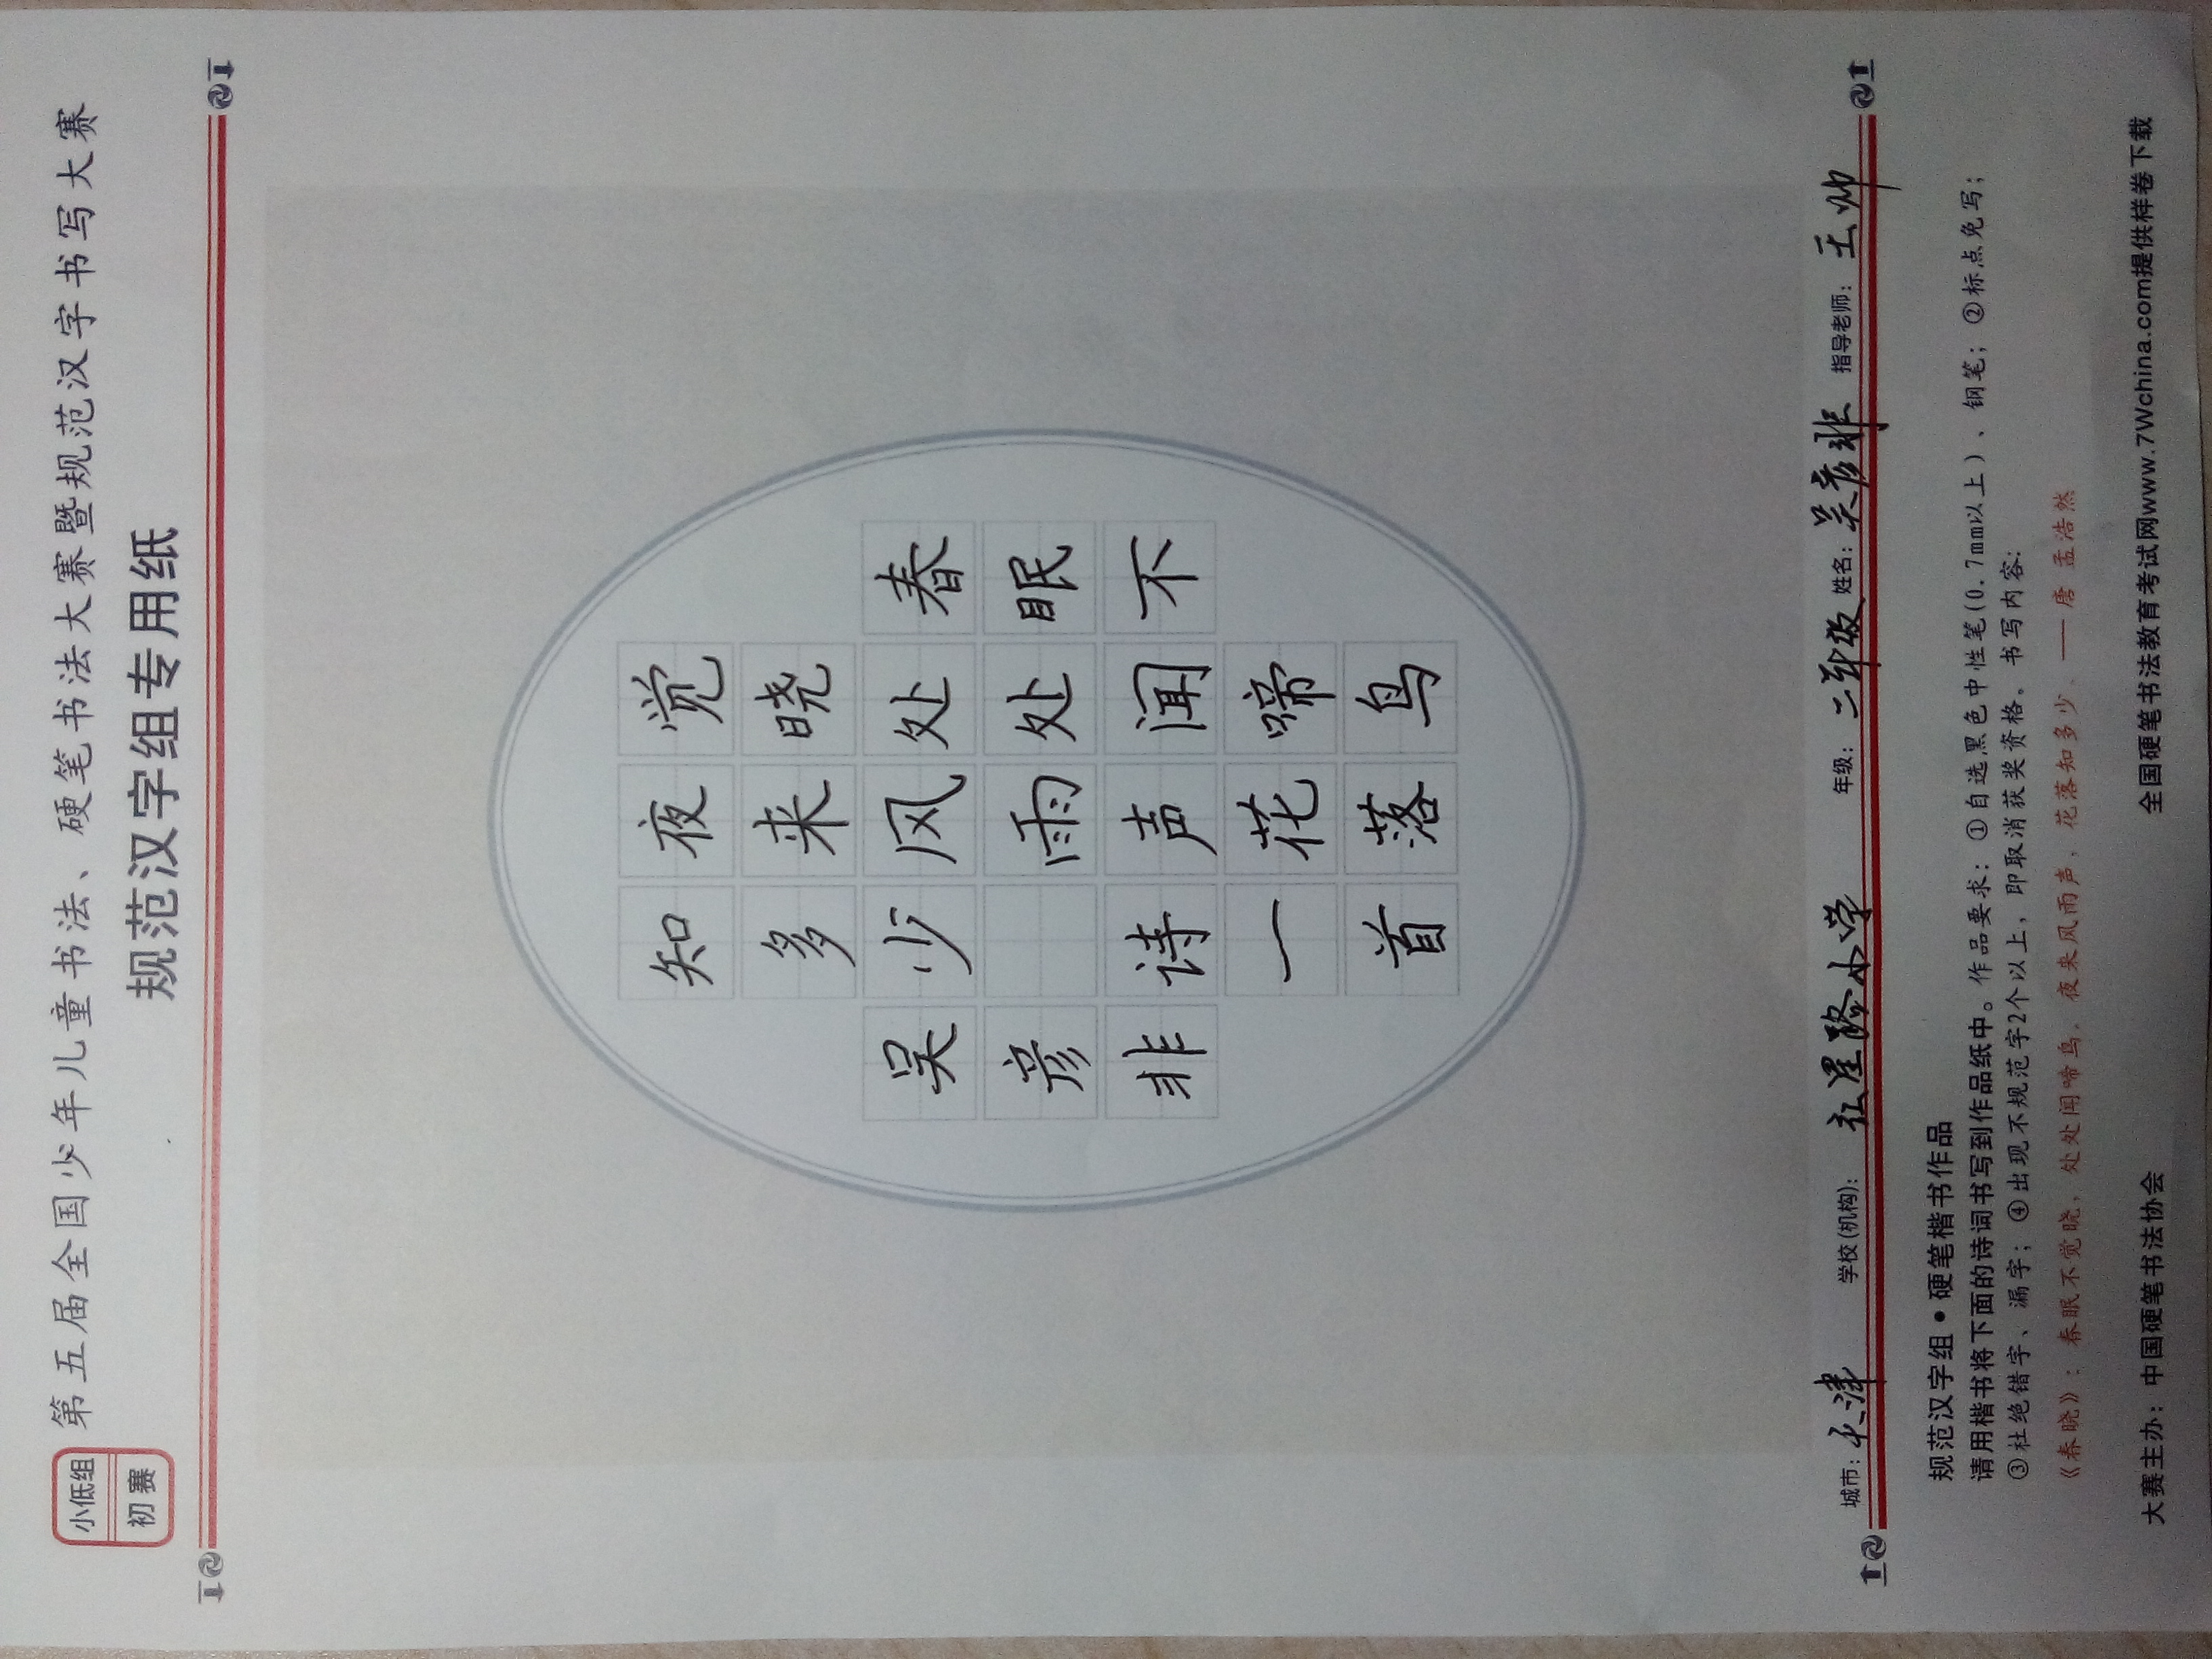 小低组
初赛
第五届全国少年儿童书法、硬笔书法大赛暨规范汉字书写大赛
规范汉字组专用纸
春眠不
觉晓处处闻啼鸟
夜来风雨声花落
知多少 诗一首
吴彦非
城市：天津 学校(机构)：红星路小学 年级：二年级 姓名：吴彦非 指导老师：王帅
规范汉字组·硬笔楷书作品
请用楷书将下面的诗词书写到作品纸中。作品要求：①自选黑色中性笔(0.7mm以上)、钢笔；②标点免写；
③杜绝错字、漏字；④出现不规范字2个以上，即取消获奖资格。书写内容：
《春晓》：春眠不觉晓，处处闻啼鸟。夜来风雨声，花落知多少。——唐 孟浩然
大赛主办：中国硬笔书法协会 全国硬笔书法教育考试网www.7Wchina.com提供样卷下载